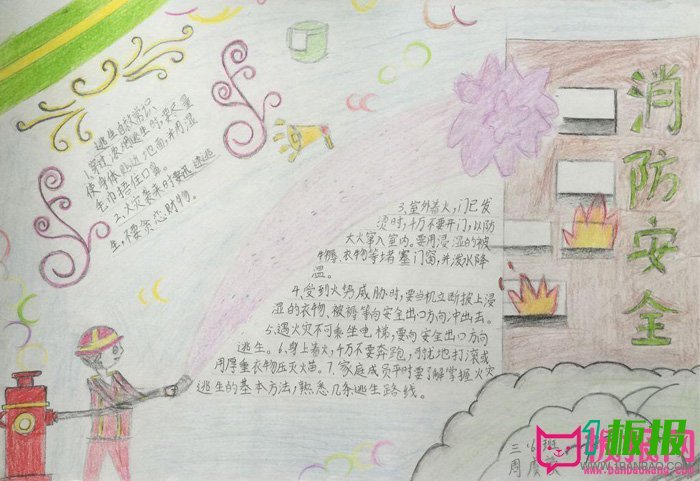 消防安全
逃生自救常识
1.穿过浓烟逃生时,要尽量
使身体贴近地面,并用湿
毛巾捂住口鼻。
2.火灾袭来时要迅速逃
生,不要贪恋财物。
3.室外着火,门已发
烫时,千万不要开门,以防
大火窜入室内。要用浸湿的被
褥、衣物等堵塞门窗,并泼水降
温。
4.受到火势威胁时,要当机立断披上浸
湿的衣物、被褥等向安全出口方向冲出去。
5.遇火灾不可乘坐电梯,要向安全出口方向
逃生。6.身上着火,千万不要奔跑,可就地打滚或
用厚重衣物压灭火苗。7.家庭成员平时要了解掌握火灾
逃生的基本方法,熟悉几条逃生路线。
三
周
板报网
1板报
WWW.1BANBAO.COM